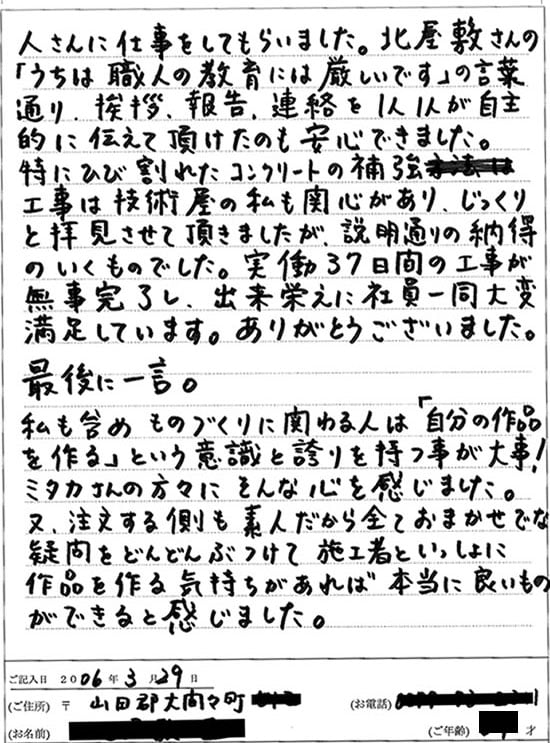 人さんに仕事をしてもらいました。北屋敷さんの
「うちは職人の教育には厳しいです」の言葉
通り、挨拶、報告、連絡を1人1人が自主
的に伝えて頂けたのも安心できました。
特にひび割れたコンクリートの補強
工事は技術屋の私も関心があり、じっくり
と拝見させて頂きましたが、説明通りの納得
のいくものでした。実働37日間の工事が
無事完了し、出来栄えに社員一同大変
満足しています。ありがとうございました。
最後に一言。
私も含めものづくりに関わる人は「自分の作品
を作る」という意識と誇りを持つ事が大事!
ミタカさんの方々にそんな心を感じました。
又、注文する側も素人だから全ておまかせでな
疑問をどんどんぶつけて施工者といっしょに
作品を作る気持ちがあれば本当に良いもの
ができると感じました。
ご記入日 2006年3月29日
(ご住所) 〒 山田郡大間々町 (お電話)
(お名前) (ご年齢) 才